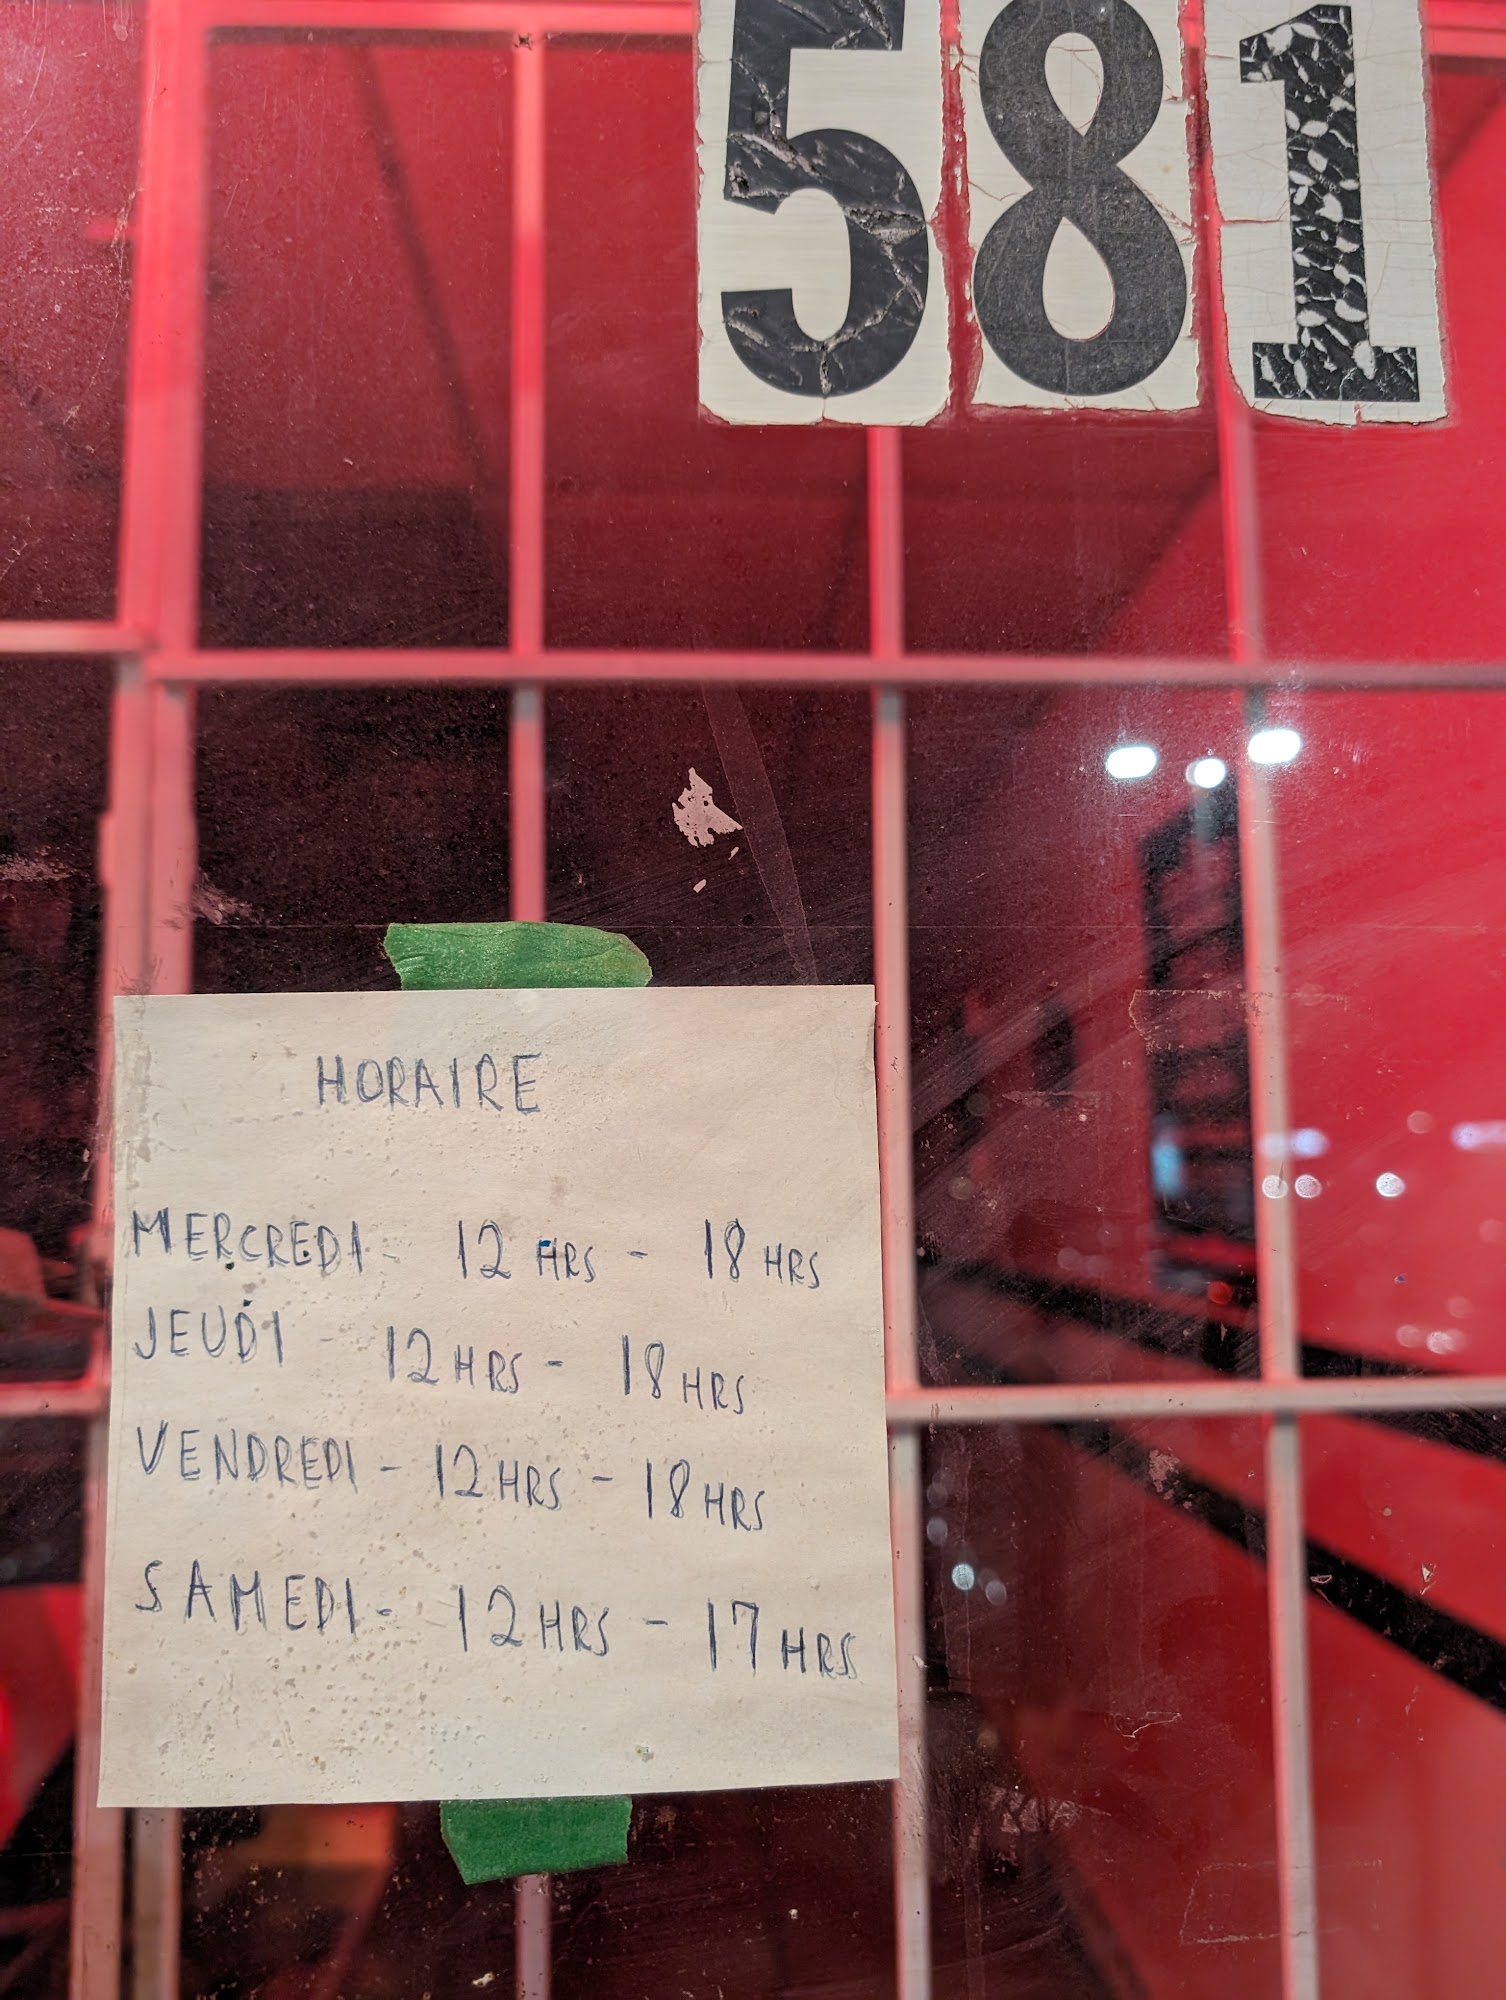 581
HORAIRE
MERCREDI - 12 HRS - 18 HRS
JEUDI - 12 HRS - 18 HRS
VENDREDI - 12 HRS - 18 HRS
SAMEDI - 12 HRS - 17 HRS